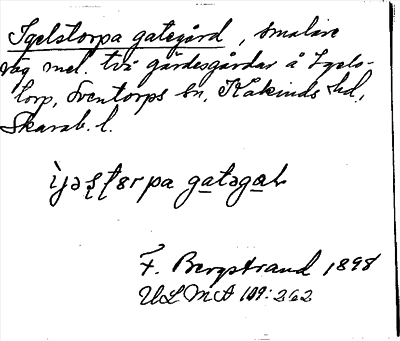 Igelstorpa gategård, smalare
väg mel. två gärdesgårdar å Igels-
torp, Sventorps sn, Kåkinds hd,
Skarab. l.
F. Bergstrand 1898
ULMA 109:262